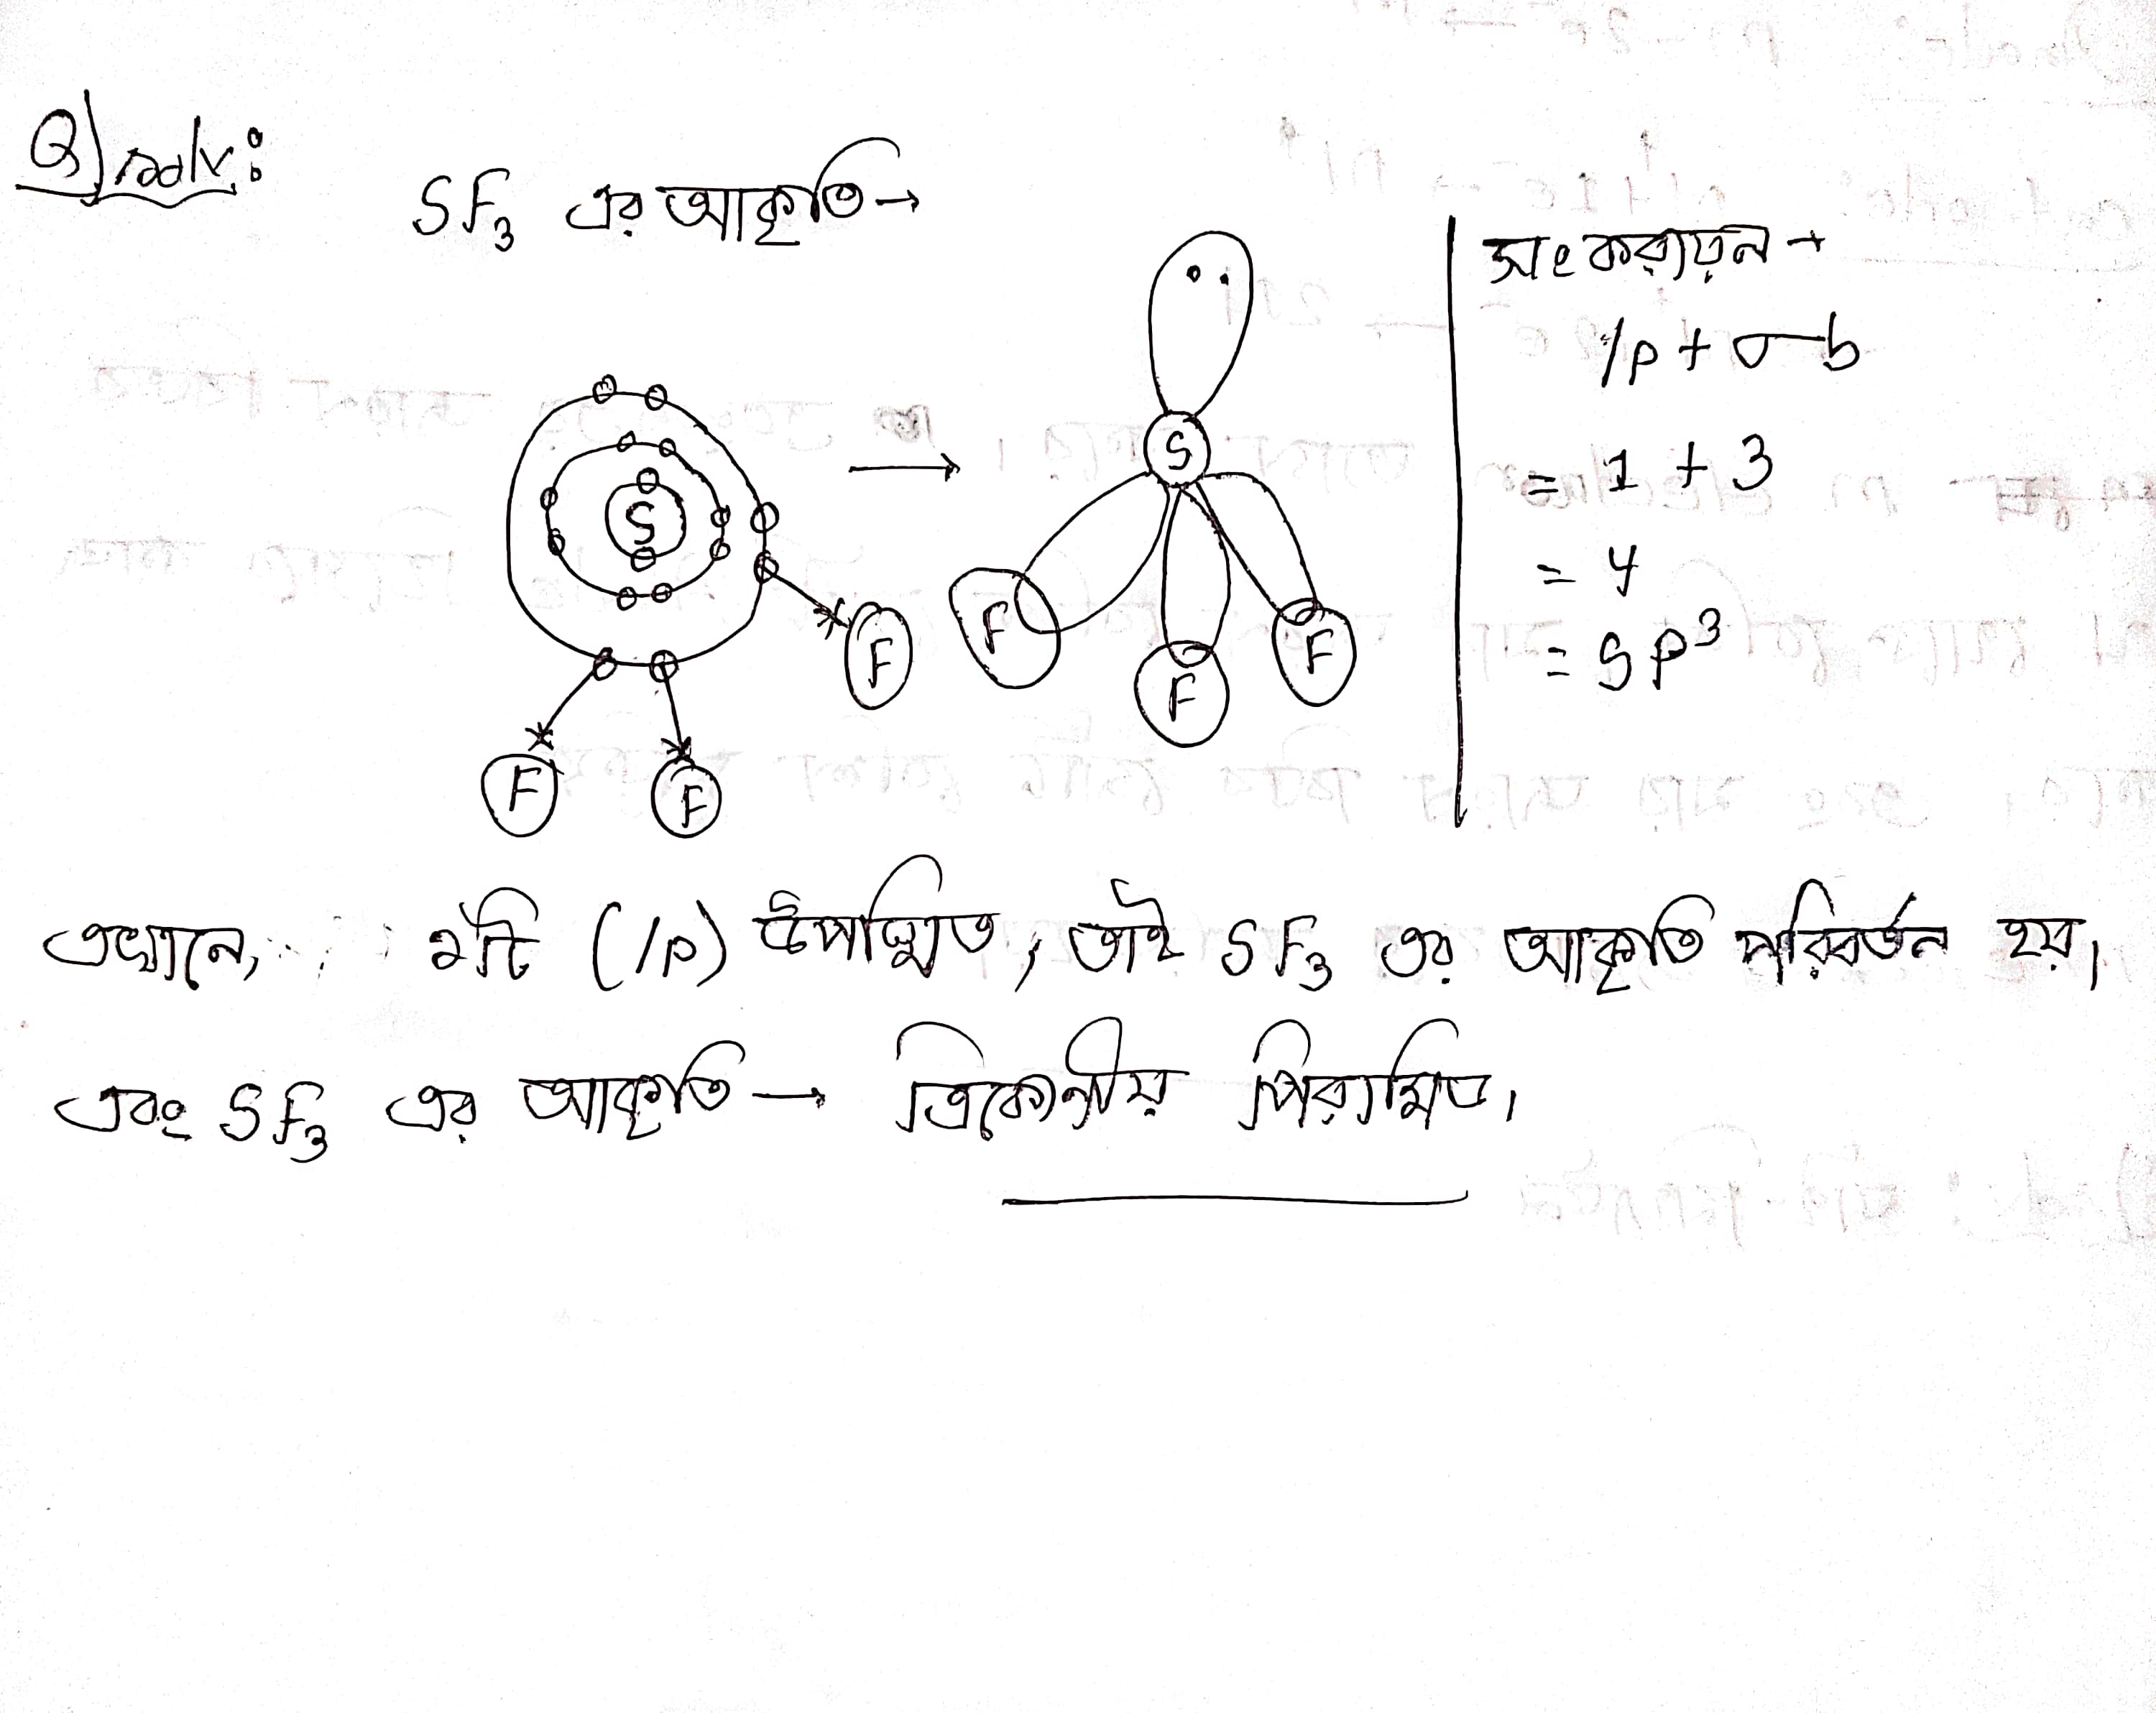 Q) solv:
SF₃ এর আকৃতি→
S
F
F
F
→
S
F
F
F
সংকরায়ন →
lp + σb
= 1 + 3
= 4
= SP³
এখানে, ১টি (lp) উপস্থিত, তাই SF₃ এর আকৃতি পরিবর্তন হয়।
এবং SF₃ এর আকৃতি → ত্রিকোনীয় পিরামিড।